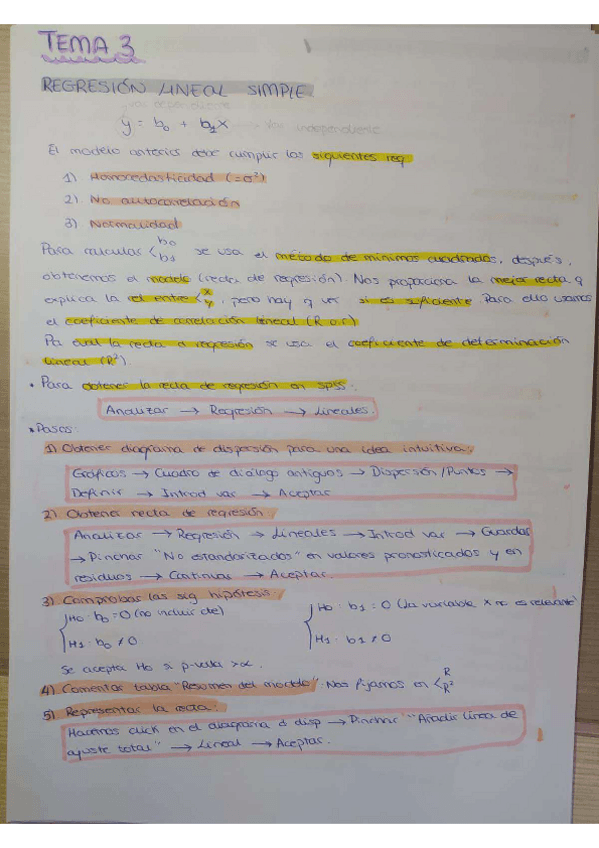 TEMA 3
REGRESIÓN LINEAL SIMPLE
var dependiente
y = b₀ + b₁x → var independiente
El modelo anterior debe cumplir los siguientes req
1) Homocedasticidad (=σ²)
2) No autocorrelación
3) Normalidad
Para calcular < b₀ b₁ se usa el método de mínimos cuadrados, después,
obtenemos el modelo (recta de regresión). Nos proporciona la mejor recta q
explica la rel entre < x y, pero hay q ver si es suficiente. Para ello usamos
el coeficiente de correlación lineal (R o r)
Pa eval la recta de regresión se usa el coeficiente de determinación
lineal (R²).
• Para obtener la recta de regresión en spss:
Analizar → Regresión → Lineales.
• Pasos:
1) Obtener diagrama de dispersión para una idea intuitiva:
Gráficos → Cuadro de diálogo antiguos → Dispersión/Puntos →
Definir → Introd var → Aceptar
2) Obtener recta de regresión:
Analizar → Regresión → Lineales → Introd var → Guardar
→ Pinchar "No estandarizados" en valores pronosticados y en
residuos → Continuar → Aceptar.
3) Comprobar las sig hipótesis:
{ H₀: b₀ = 0 (no incluir cte) { H₀: b₁ = 0 (la variable x no es relevante)
H₁: b₀ ≠ 0 H₁: b₁ ≠ 0
Se acepta H₀ si p-valor > α.
4) Comentar tabla "Resumen del modelo". Nos fijamos en < R R²
5) Representar la recta:
Hacemos click en el diagrama d disp → Pinchar "Añadir línea de
ajuste total" → Lineal → Aceptar.